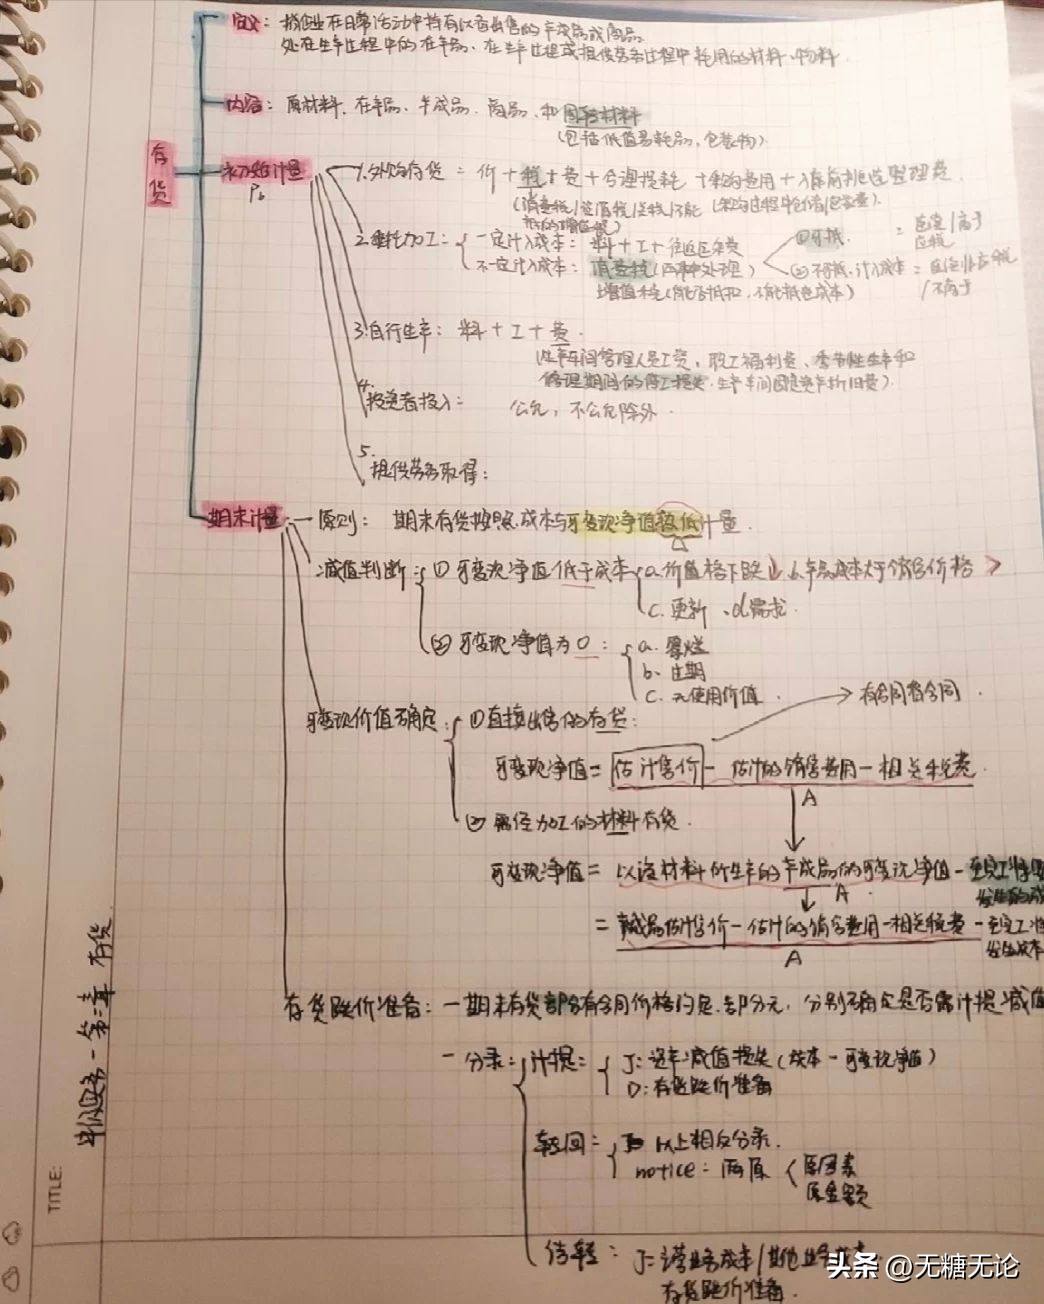 定义：指企业在日常活动中持有以备出售的产成品或商品、
处在生产过程中的在产品、在生产过程或提供劳务过程中耗用的材料、物料
内容：原材料、在产品、半成品、商品、和周转材料
（包括低值易耗品，包装物）
存货
初始计量
1.外购存货 = 价+税+费+合理损耗+采购费用+入库前挑选整理费
2.委托加工：
一定计入成本：料+工+往返运杂费
不一定计入成本：消费税
①可抵
②不可抵，计入成本
增值税
3.自行生产：料+工+费.
（生产车间管理人员工资，职工福利费、季节性生产和
修理期间的停工损失，生产车间固定资产折旧费）
4.投资者投入：公允，不公允除外.
5.提供劳务取得：
期末计量
原则：期末存货按照成本与可变现净值较低计量.
减值判断：
①可变现净值低于成本
a.价值格下跌
b.产品成本大于销售价格
c.更新、d需求.
②可变现净值为0：
a.霉烂
b、过期
c.无使用价值.
有合同看合同.
可变现价值确定
①直接出售的存货：
可变现净值=估计售价-估计的销售费用-相关税费.
A
②需经加工的材料存货.
可变现净值=以该材料所生产的产成品的可变现净值-至完工将要
发生的成
A
=产成品估计售价-估计的销售费用-相关税费-至完工将
发生成本
A
存货跌价准备：一期末存货部分有合同价格约定，部分无，分别确定是否需计提减值
一分录：
计提：
J：资产减值损失（成本-可变现净值）
D：存货跌价准备
转回=
以上相反分录.
notice：两原
原因素
原金额
结转：
J=主营业务成本/其他业务成本
存货跌价准备.
中级实务-第二章 存货
TITLE:
头条 @无糖无论